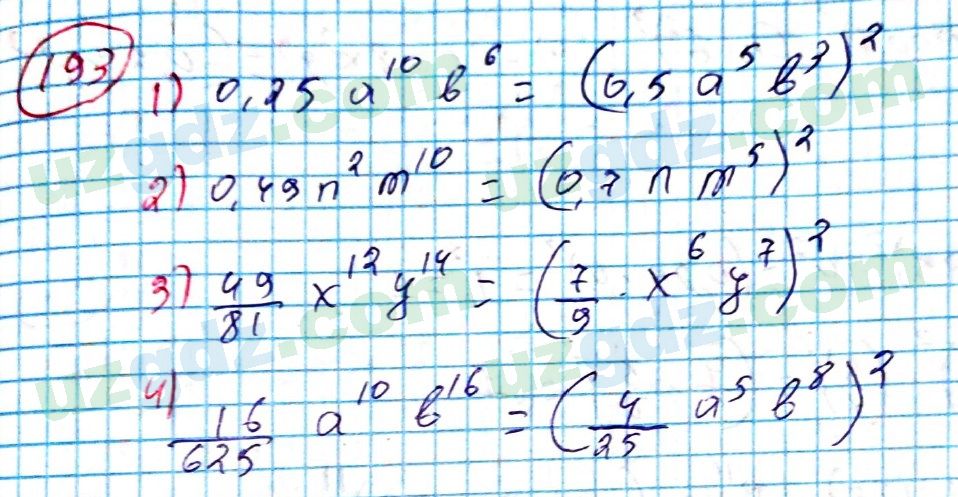 193
1) 0,25 a¹⁰ b⁶ = (0,5 a⁵ b³)²
2) 0,49 n² m¹⁰ = (0,7 n m⁵)²
3) 49/81 x¹² y¹⁴ = (7/9 · x⁶ y⁷)²
4) 16/625 a¹⁰ b¹⁶ = (4/25 a⁵ b⁸)²
uzgdz.com
uzgdz.com
uzgdz.com
uzgdz.com
uzgdz.com
uzgdz.com